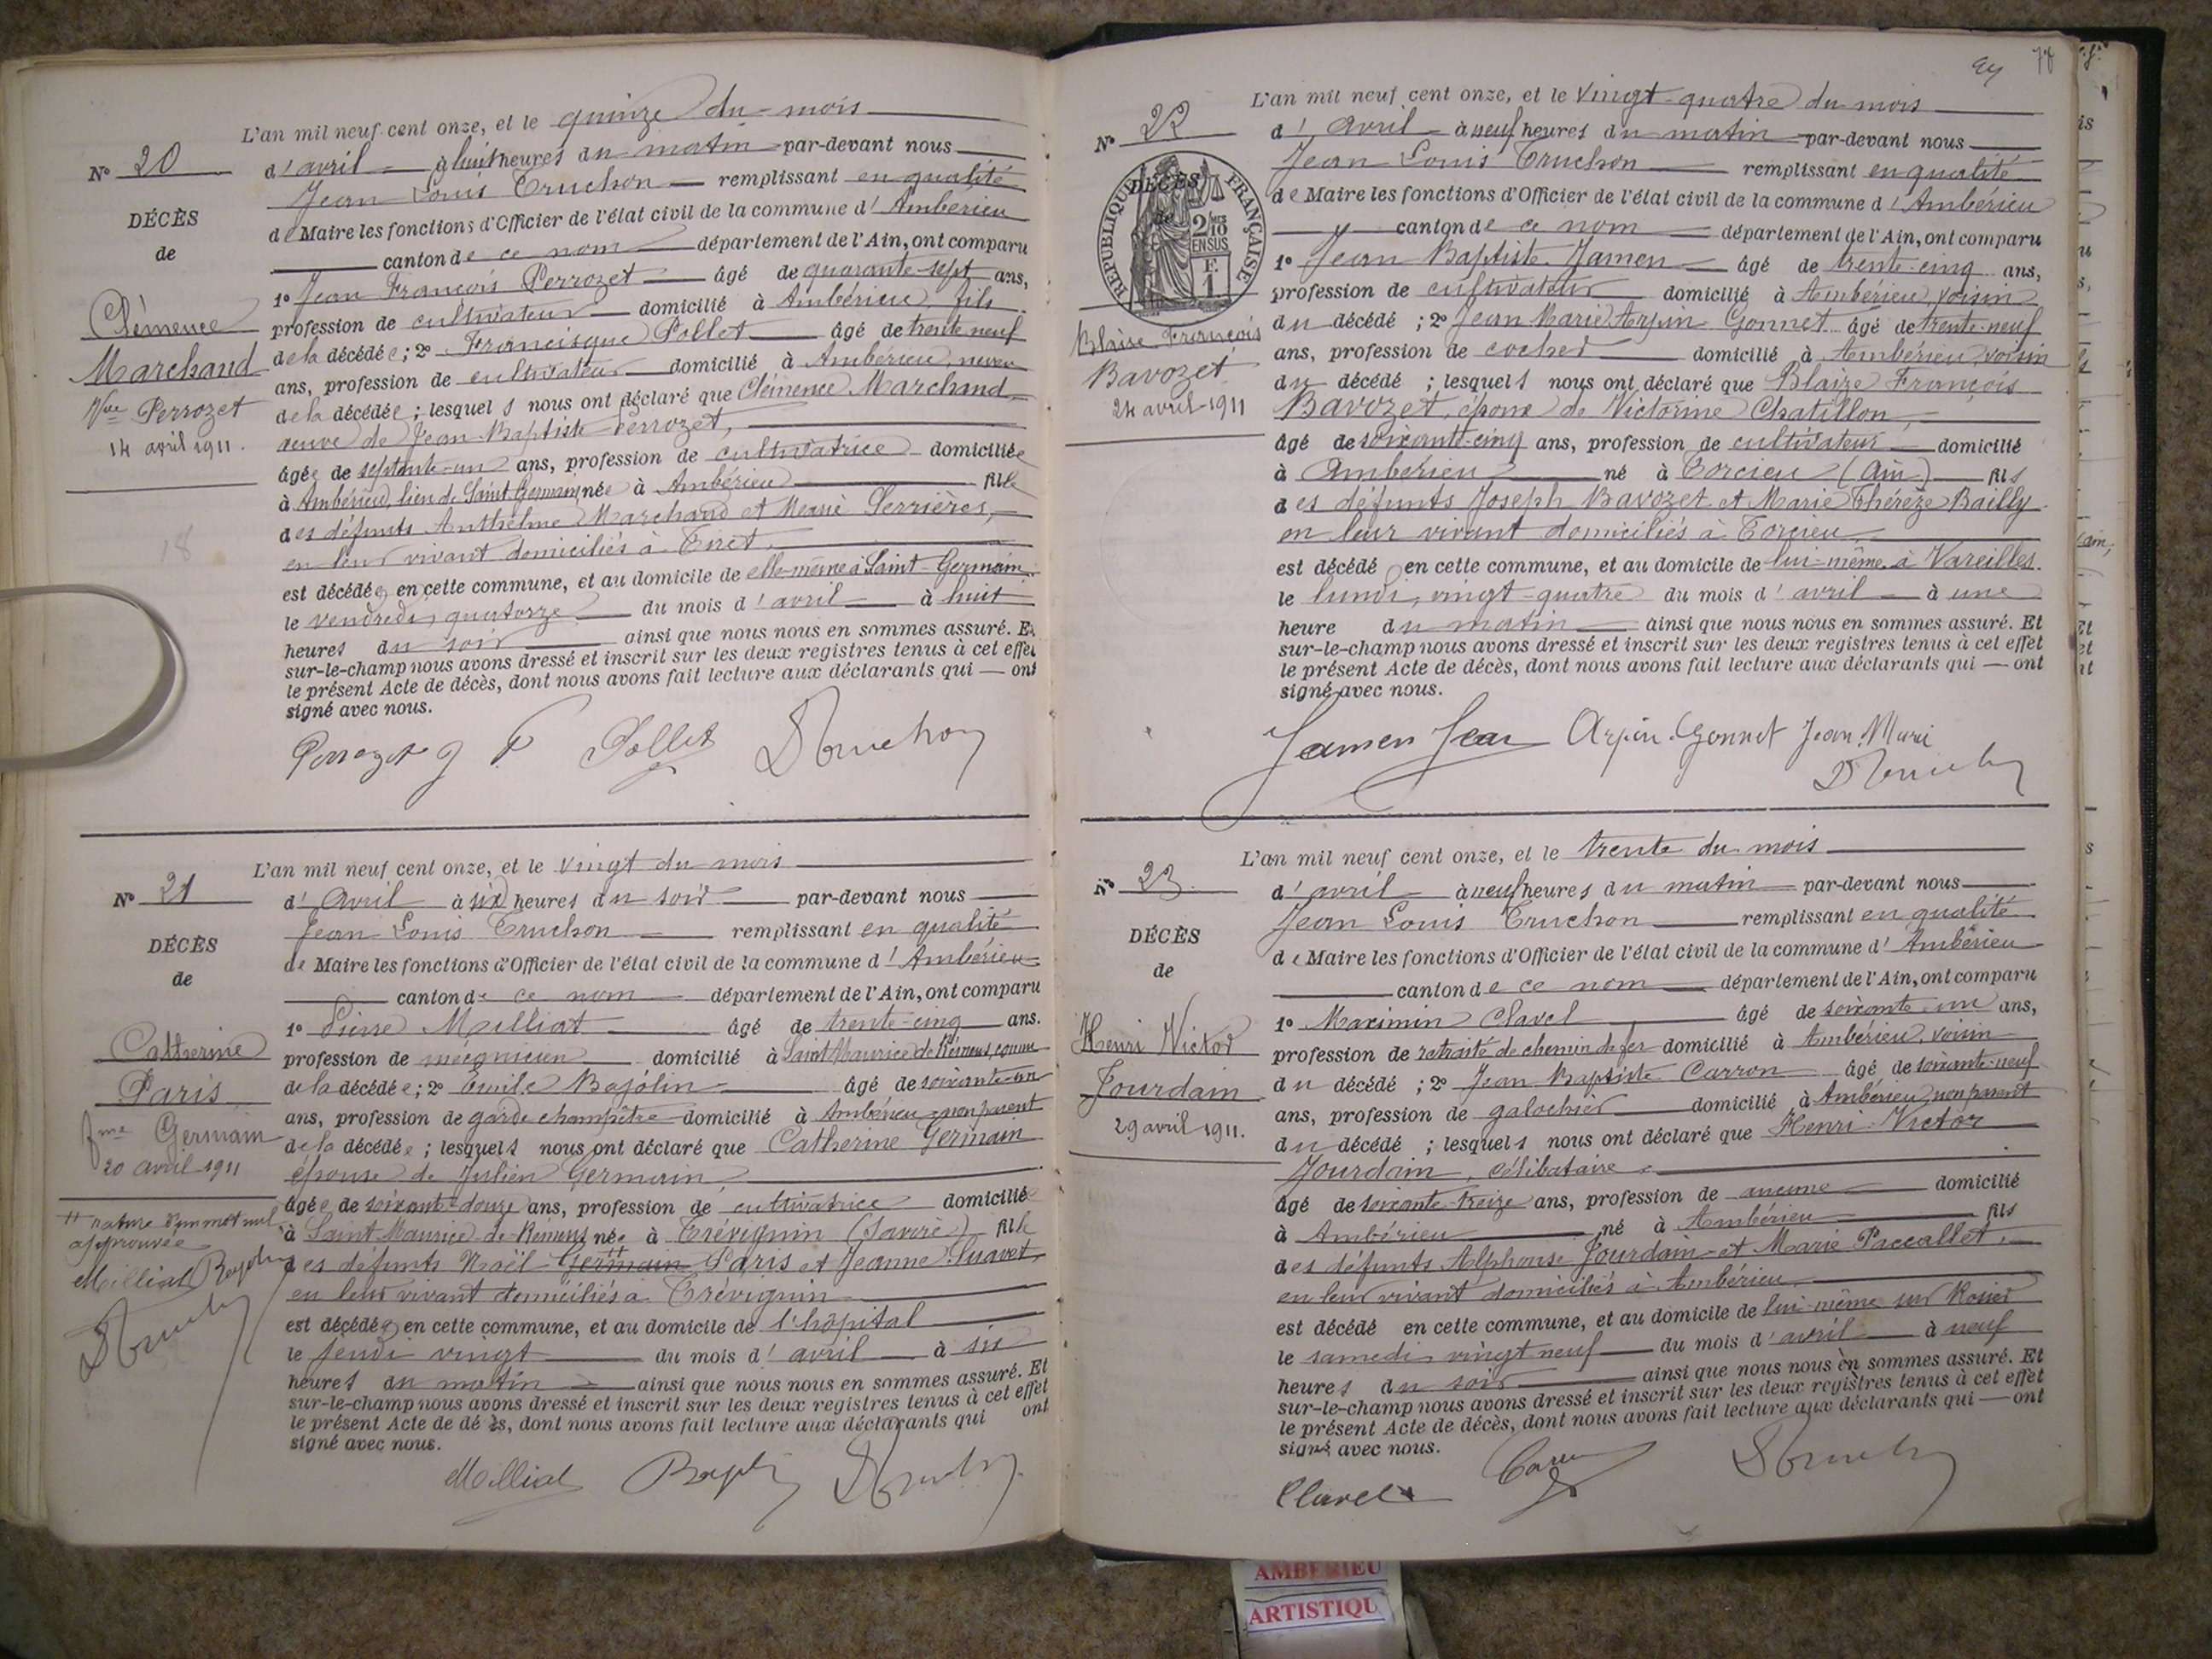 L'an mil neuf cent onze, et le quinze du mois
N° 20
d'avril à huit heures du matin par-devant nous
Jean Louis Truchon remplissant en qualité
de Maire les fonctions d'Officier de l'état civil de la commune d'Ambérieu
DÉCÈS
de
canton de ce nom département de l'Ain, ont comparu
1° Jean François Perrozet âgé de quarante-sept ans,
profession de cultivateur domicilié à Ambérieu, fils
Clémence
Marchand
Vve Perrozet
14 avril 1911.
de la décédée; 2° Francisque Pollet âgé de trente neuf
ans, profession de cultivateur domicilié à Ambérieu, neveu
de la décédée; lesquels nous ont déclaré que Clémence Marchand,
veuve de Jean-Baptiste Perrozet,
âgée de septante-un ans, profession de cultivatrice domiciliée
à Ambérieu, lieu de Saint Germain née à Ambérieu fille
des défunts Anthelme Marchand et Marie Serrières,
en leur vivant domiciliés à Tiret,
est décédée en cette commune, et au domicile de elle-même à Saint-Germain
le vendredi, quatorze du mois d'avril à huit
heures du soir ainsi que nous nous en sommes assuré. Et
sur-le-champ nous avons dressé et inscrit sur les deux registres tenus à cet effet
le présent Acte de décès, dont nous avons fait lecture aux déclarants qui — ont
signé avec nous.
Perrozet J F Pollet Truchon
L'an mil neuf cent onze, et le vingt du mois
N° 21
d'avril à six heures du soir par-devant nous
Jean Louis Truchon remplissant en qualité
de Maire les fonctions d'Officier de l'état civil de la commune d'Ambérieu
DÉCÈS
de
canton de ce nom département de l'Ain, ont comparu
1° Pierre Milliat âgé de trente-cinq ans.
profession de mécanicien domicilié à Saint Maurice de Rémens,
Catherine
Paris
fme Germain
20 avril 1911
de la décédée; 2° Emile Bajolin âgé de soixante-un
ans, profession de garde champêtre domicilié à Ambérieu non parent
de la décédée; lesquels nous ont déclaré que Catherine Germain
épouse de Julien Germain,
âgée de soixante-douze ans, profession de cultivatrice domiciliée
à Saint Maurice de Rémens née à Trévignin (Savoie) fille
des défunts Noël Germain Paris et Jeanne Suavet,
en leur vivant domiciliés à Trévignin
rature d'un mot nul
approuvée
Milliat
Truchon
est décédée en cette commune, et au domicile de l'hôpital
le jeudi vingt du mois d'avril à six
heures du matin ainsi que nous nous en sommes assuré. Et
sur-le-champ nous avons dressé et inscrit sur les deux registres tenus à cet effet
le présent Acte de dé ès, dont nous avons fait lecture aux déclarants qui ont
signé avec nous.
Milliat Bajolin Truchon
78
L'an mil neuf cent onze, et le vingt-quatre du mois
N° 22
d'avril à neuf heures du matin par-devant nous
Jean Louis Truchon remplissant en qualité
de Maire les fonctions d'Officier de l'état civil de la commune d'Ambérieu
DÉCÈS
de
RÉPUBLIQUE FRANÇAISE
2/10
EN SUS
F.
1
canton de ce nom département de l'Ain, ont comparu
1° Jean Baptiste Jamen âgé de trente-cinq ans,
profession de cultivateur domicilié à Ambérieu, voisin
du décédé; 2° Jean Marie Arpin-Gonnet âgé de trente-neuf
Blaise François
Bavozet
24 avril 1911
ans, profession de cocher domicilié à Ambérieu voisin
du décédé; lesquels nous ont déclaré que Blaize François
Bavozet, époux de Victorine Chatillon,
âgé de soixante-cinq ans, profession de cultivateur domicilié
à Ambérieu né à Torcieu (Ain) fils
des défunts Joseph Bavozet et Marie Thérèze Bailly
en leur vivant domiciliés à Torcieu
est décédé en cette commune, et au domicile de lui-même à Vareilles.
le lundi, vingt-quatre du mois d'avril à une
heure du matin ainsi que nous nous en sommes assuré. Et
sur-le-champ nous avons dressé et inscrit sur les deux registres tenus à cet effet
le présent Acte de décès, dont nous avons fait lecture aux déclarants qui — ont
signé avec nous.
Jamen Jean Arpin-Gonnet Jean Marie
Truchon
L'an mil neuf cent onze, et le trente du mois
N° 23
d'avril à neuf heures du matin par-devant nous
Jean Louis Truchon remplissant en qualité
de Maire les fonctions d'Officier de l'état civil de la commune d'Ambérieu
DÉCÈS
de
canton de ce nom département de l'Ain, ont comparu
1° Maximin Clavel âgé de soixante un ans,
profession de retraité de chemin de fer domicilié à Ambérieu, voisin
Henri Victor
Jourdain
29 avril 1911.
du décédé; 2° Jean Baptiste Carron âgé de soixante-neuf
ans, profession de galochier domicilié à Ambérieu, non parent
du décédé; lesquels nous ont déclaré que Henri Victor
Jourdain, célibataire
âgé de soixante-treize ans, profession de aucune domicilié
à Ambérieu né à Ambérieu fils
des défunts Alphonse Jourdain et Marie Paccallet,
en leur vivant domiciliés à Ambérieu
est décédé en cette commune, et au domicile de lui-même sur Rosier
le samedi vingt neuf du mois d'avril à neuf
heures du soir ainsi que nous nous en sommes assuré. Et
sur-le-champ nous avons dressé et inscrit sur les deux registres tenus à cet effet
le présent Acte de décès, dont nous avons fait lecture aux déclarants qui — ont
signé avec nous.
Clavel Truchon
AMBERIEU
ARTISTIQU